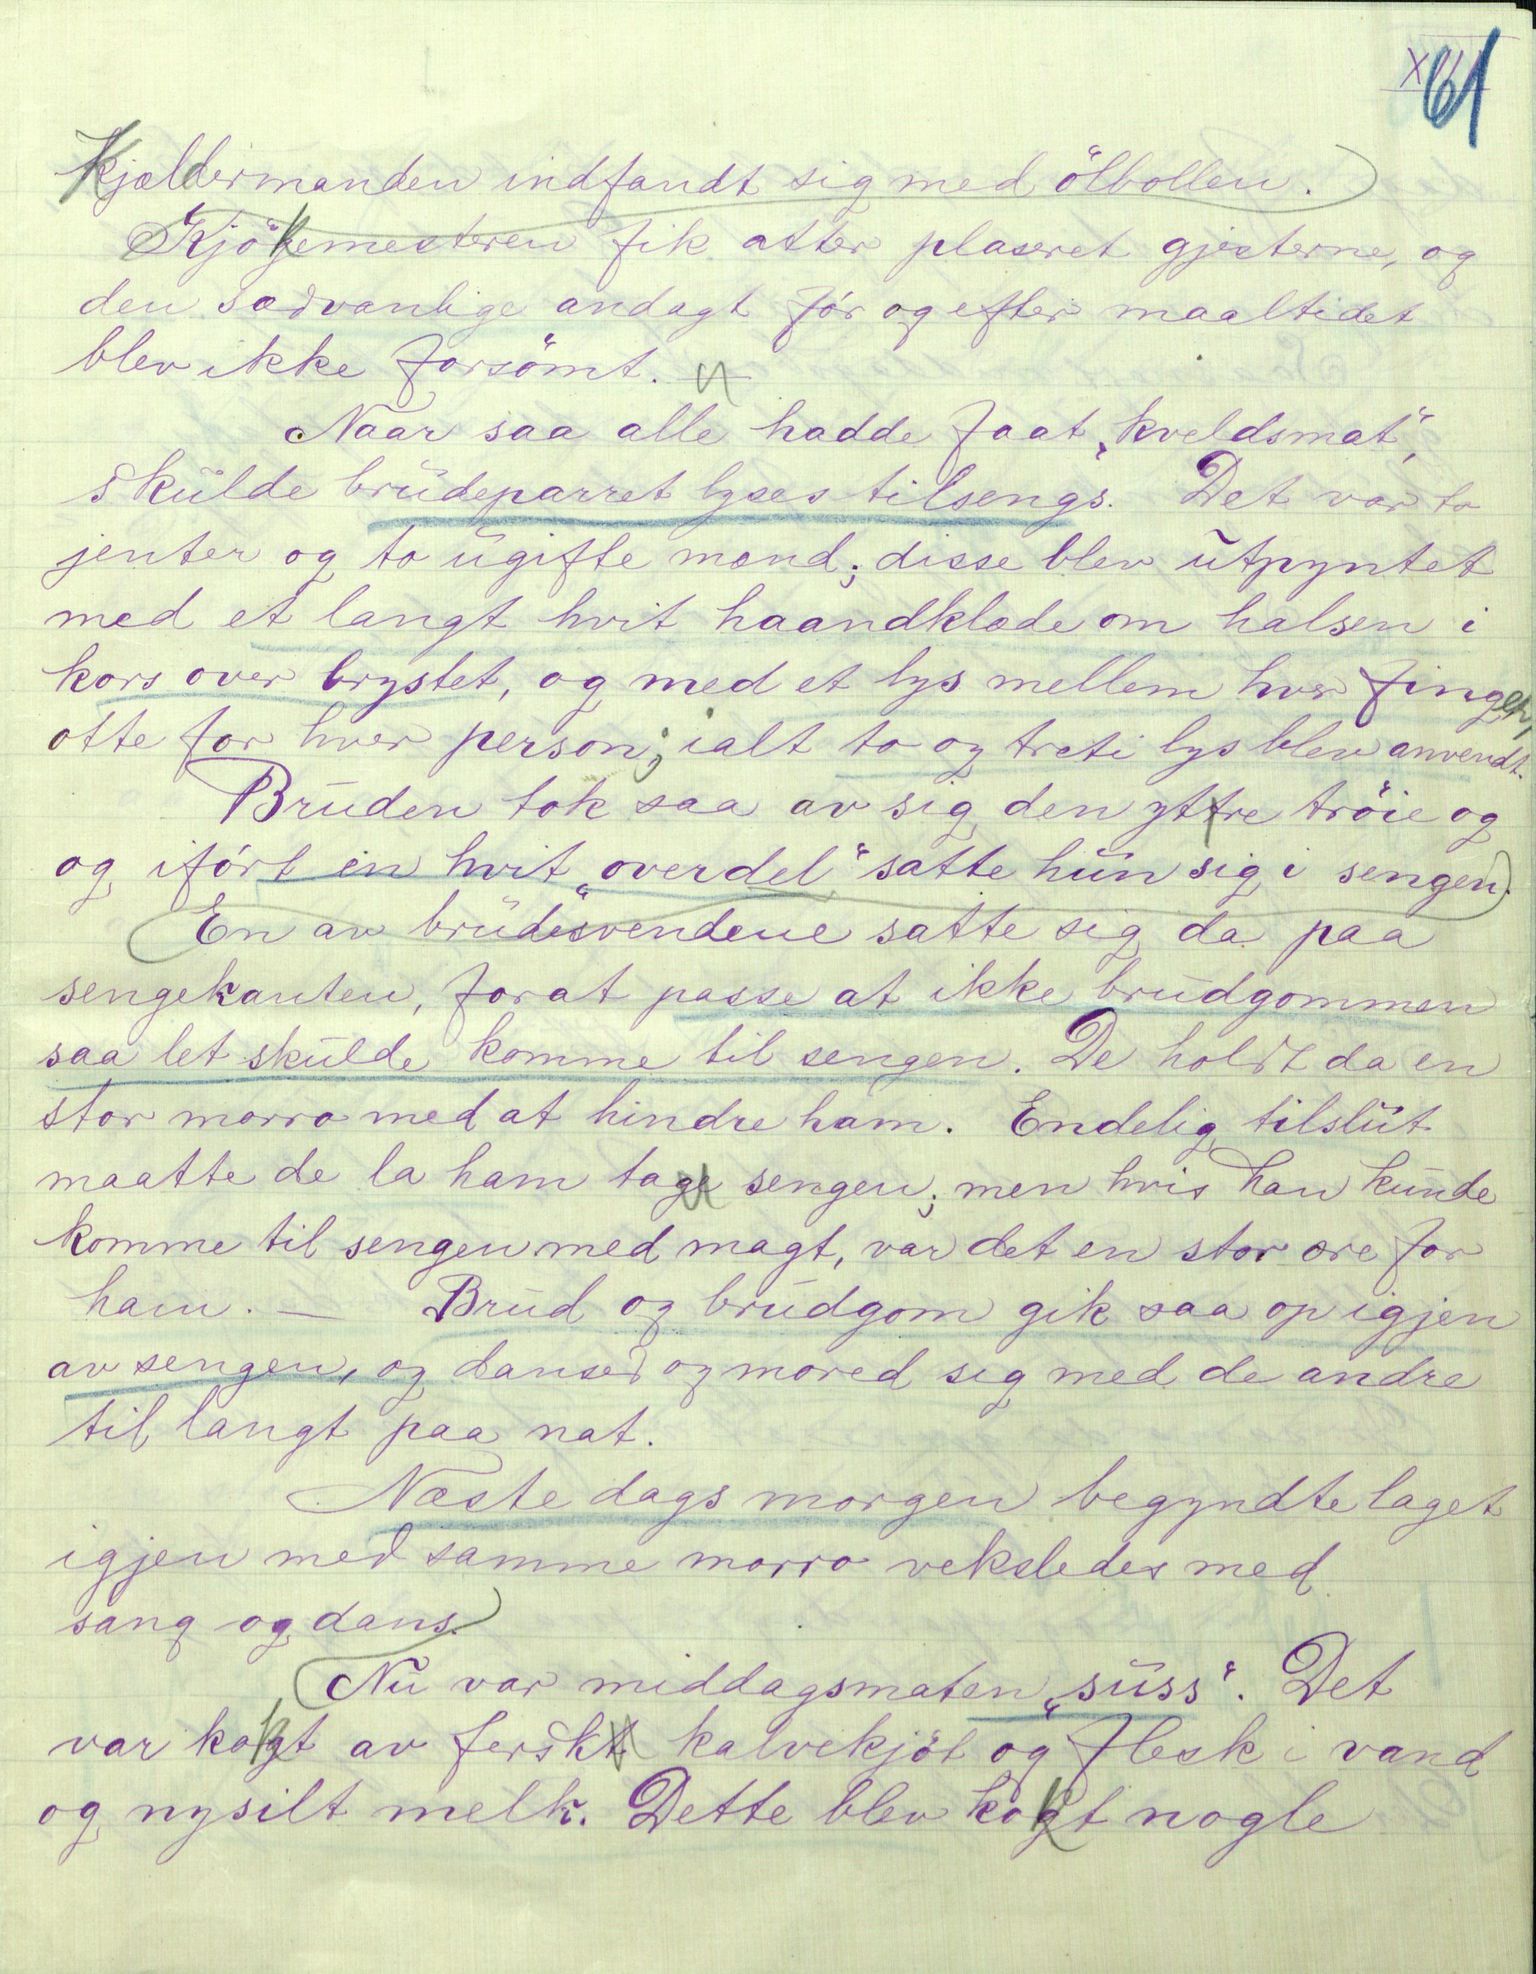 61
Kjældermanden indfandt sig med ölbollen.
Kjökemesteren fik atter plaseret gjesterne, og
den sædvanlige andagt för og efter maaltidet
blev ikke forsömt.
Naar saa alle hadde faat „kveldsmat“,
skulde brudeparret lyses tilsengs. Det var to
jenter og to ugifte mænd; disse blev utpyntet
med et langt hvit haandklæde om halsen i
kors over brystet, og med et lys mellem hver finger,
otte for hver person; ialt to og treti lys blev anvendt.
Bruden tok saa av sig den yttre tröie og
og ifört en hvit „overdel“ satte hun sig i sengen.
En av brudesvendene satte sig da paa
sengekanten, forat passe at ikke brudgommen
saa let skulde komme til sengen. De holdt da en
stor morro med at hindre ham. Endelig tilslut
maatte de la ham tage sengen; men hvis han kunde
komme til sengen med magt, var det en stor ære for
ham. — Brud og brudgom gik saa op igjen
av sengen, og danset og mored sig med de andre
til langt paa nat.
Næste dags morgen begyndte laget
igjen med samme morro veksledes med
sang og dans.
Nu var middagsmaten „suss“. Det
var kokt av ferskt kalvekjöt og flesk i vand
og nysilt melk. Dette blev kokt nogle